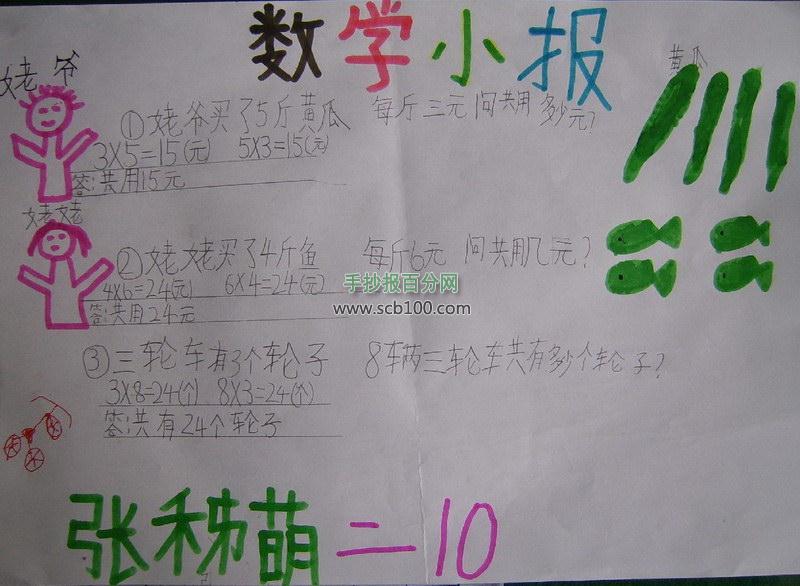 数学小报
姥爷
黄瓜
①姥爷买了5斤黄瓜 每斤三元 问共用多少元?
3X5=15(元) 5X3=15(元)
答:共用15元
姥姥
②姥姥买了4斤鱼 每斤6元 问共用几元?
4X6=24(元) 6X4=24(元)
答:共用24元
手抄报百分网
www.scb100.com
③三轮车有3个轮子 8辆三轮车共有多少个轮子?
3X8=24(个) 8X3=24(个)
答:共有24个轮子
张 萌二10